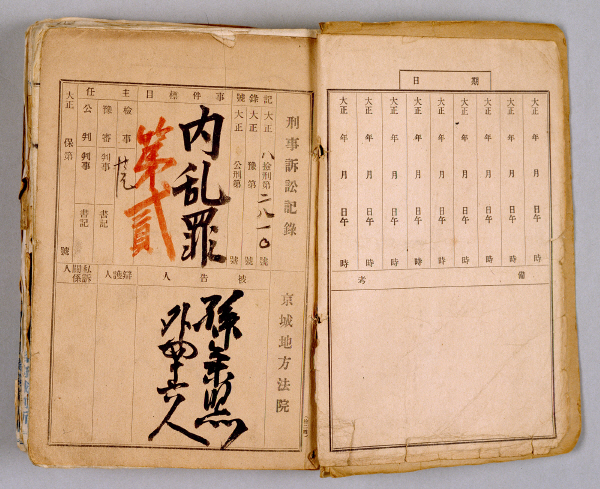 期日
大正 年 月 日午 時
大正 年 月 日午 時
大正 年 月 日午 時
大正 年 月 日午 時
大正 年 月 日午 時
大正 年 月 日午 時
大正 年 月 日午 時
大正 年 月 日午 時
大正 年 月 日午 時
備考
刑事訴訟記錄 京城地方法院
記錄號
大正 八 檢刑第二八一〇號
大正 豫第 號
大正 公刑第 號
事件標目
內乱罪
第貳
主任
檢事
豫審判事 書記
公判判事 書記
大正 保第 號
被告人
孫秉熙
外四十六人
辯護人
私訴關係人